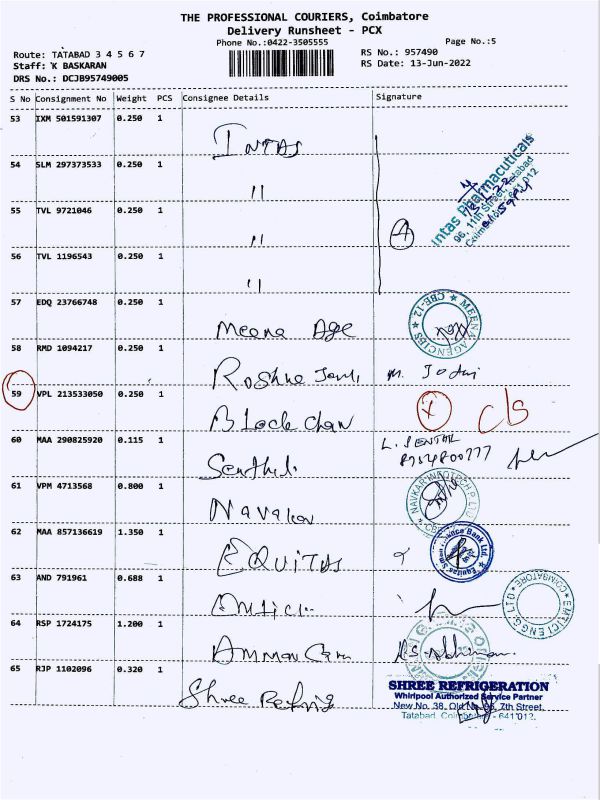 THE PROFESSIONAL COURIERS, Coimbatore
Delivery Runsheet - PCX
Phone No.:0422-3505555
Page No.:5
Route: TATABAD 3 4 5 6 7
RS No.: 957490
Staff: K BASKARAN
RS Date: 13-Jun-2022
DRS No.: DCJB95749005
S No Consignment No Weight PCS Consignee Details Signature
53 IXM 501591307 0.250 1 INTAS
54 SLM 297373533 0.250 1 "
Intas Pharmacuticals
96, 11th Street, Tatabad
Coimbatore - 641 012
55 TVL 9721046 0.250 1 "
4
56 TVL 1196543 0.250 1 "
57 EDQ 23766748 0.250 1 Meena Age
MEENA AGENCIES ★ CBE-12 ★
58 RMD 1094217 0.250 1
59 VPL 213533050 0.250 1 Block Chan
60 MAA 290825920 0.115 1 Senthil
61 VPM 4713568 0.800 1 Navakar
NAVKAR INFOTECH P. LTD
62 MAA 857136619 1.350 1 EQUITAS
Equitas Small Finance Bank Ltd.
63 AND 791961 0.688 1
EMTICI ENGG. LTD COIMBATORE
64 RSP 1724175 1.200 1
65 RJP 1102096 0.320 1 Shree Refrig
SHREE REFRIGERATION
Whirlpool Authorized Service Partner
New No. 38, Old No. 7th Street,
Tatabad, Coimbatore - 641 012.